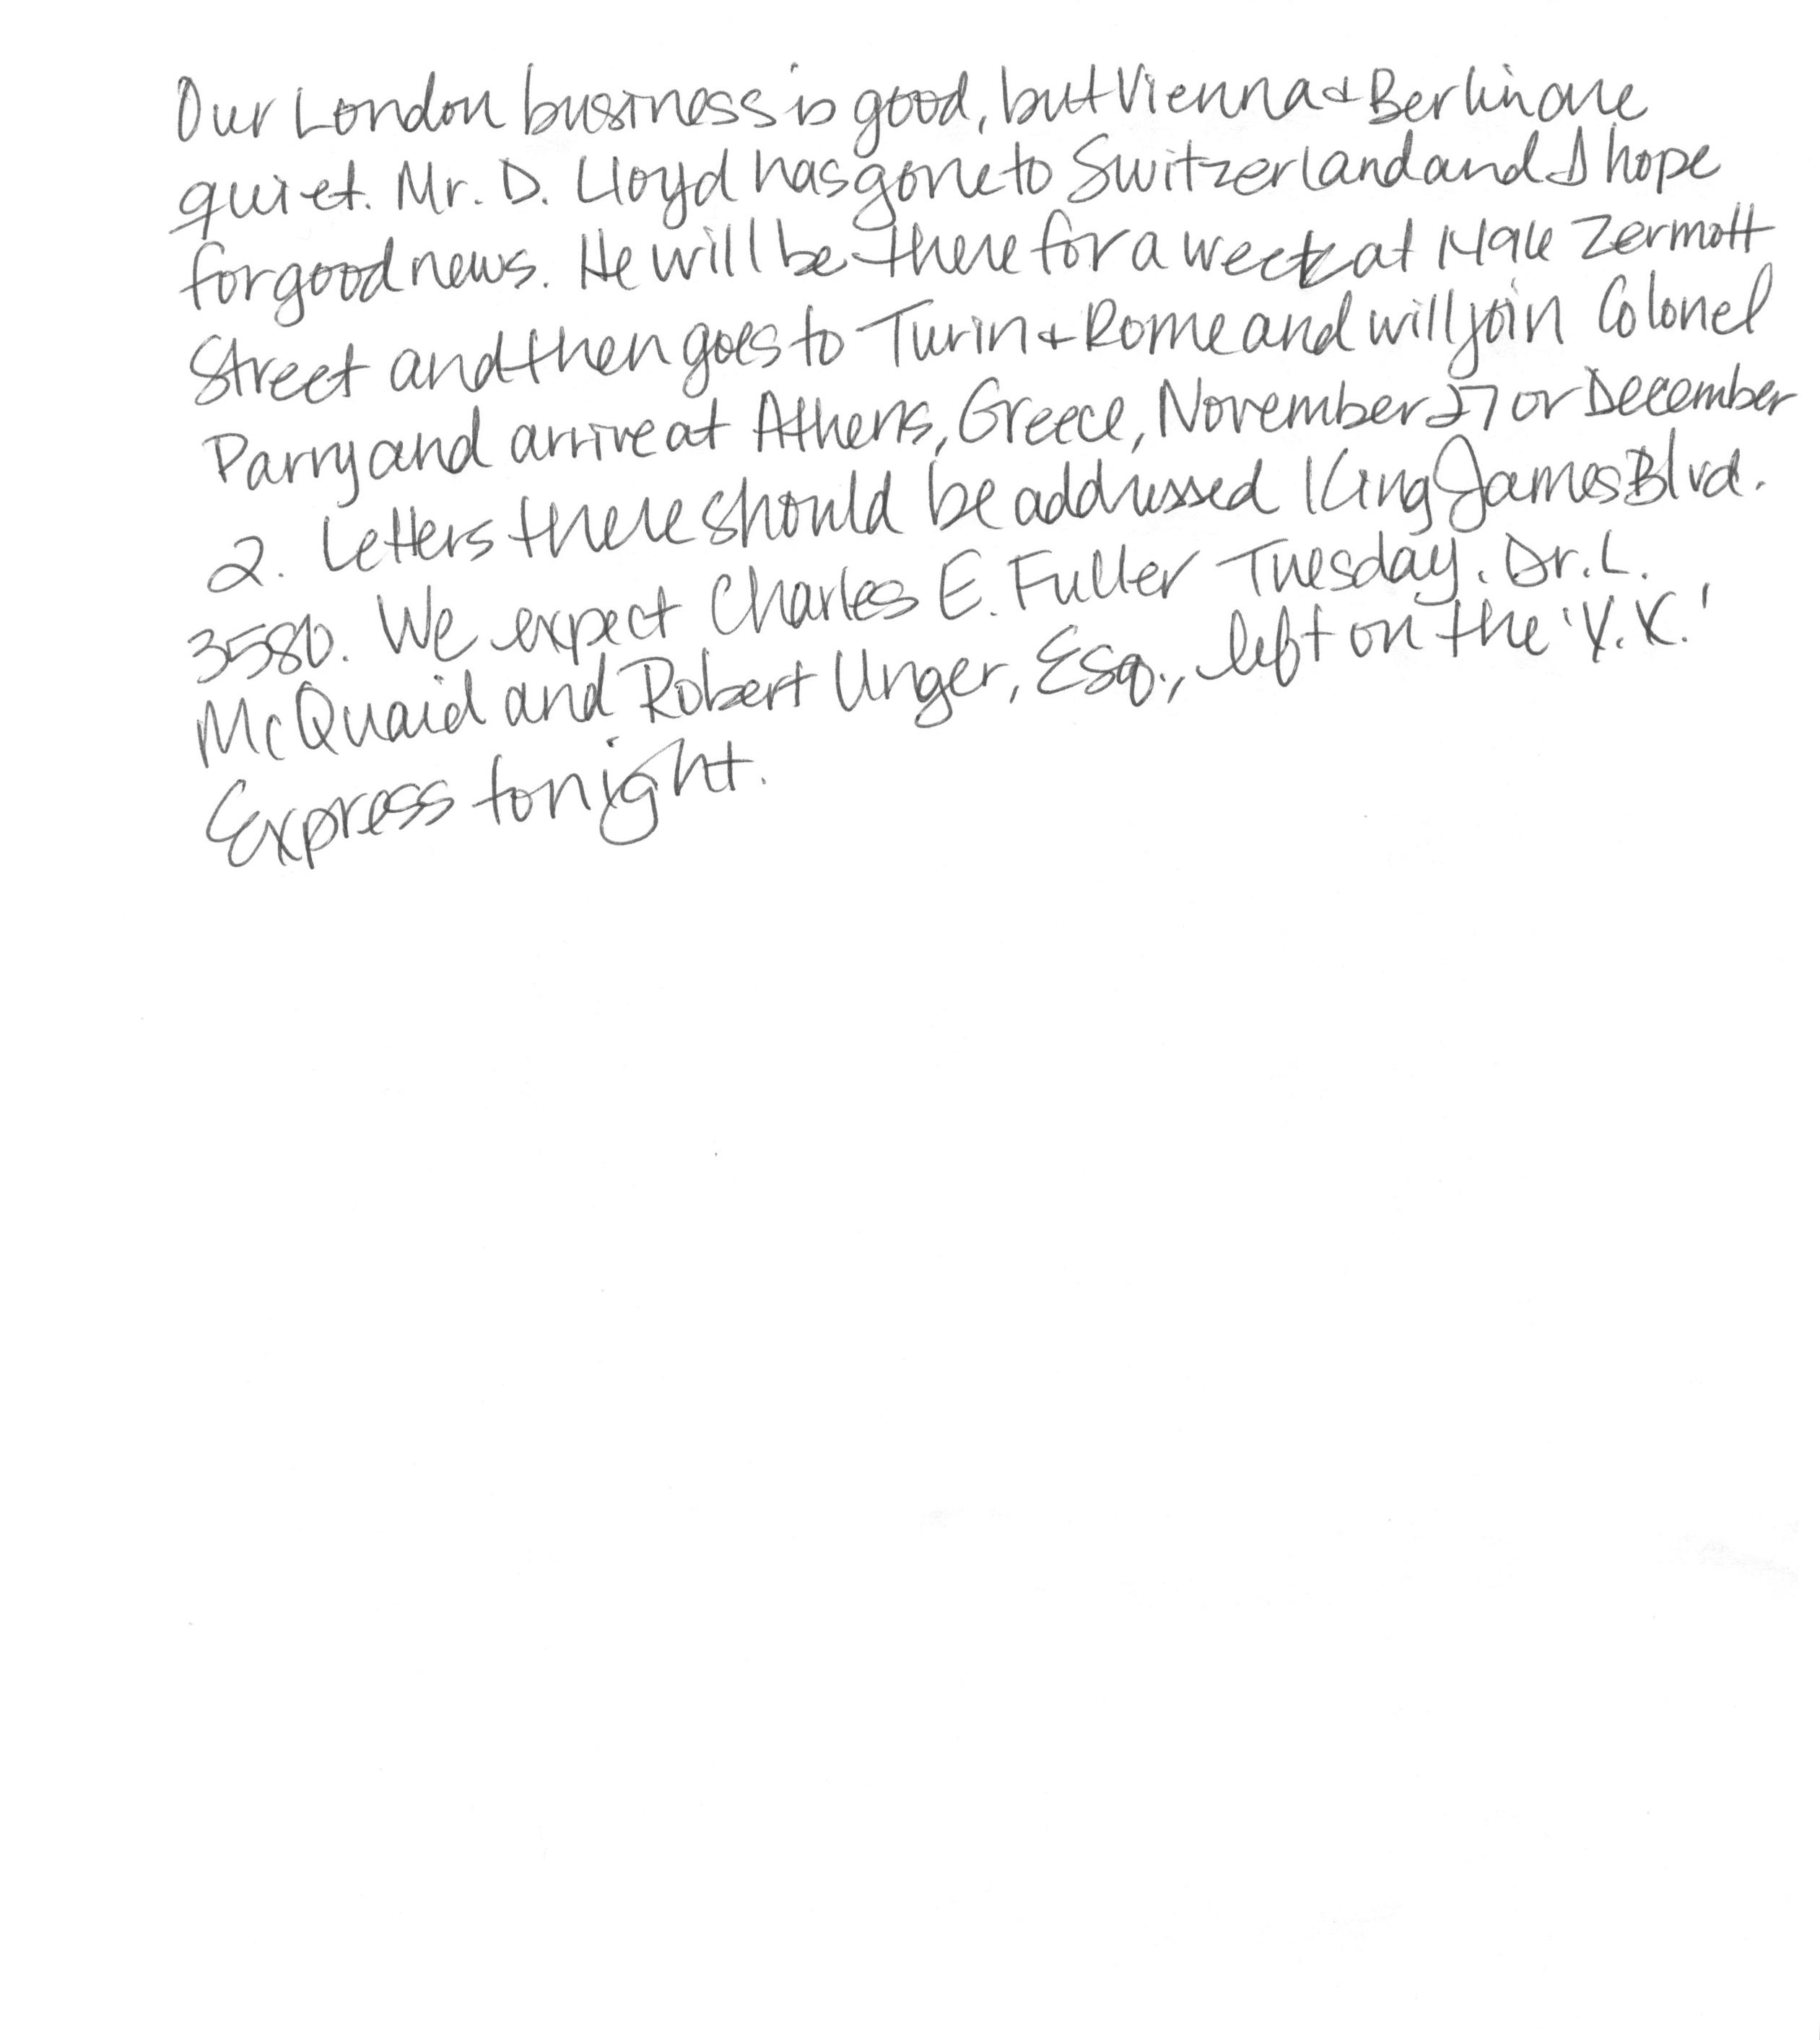 Our London business is good, but Vienna & Berlin are
quiet. Mr. D. Lloyd has gone to Switzerland and I hope
for good news. He will be there for a week at 1496 Zermott
Street and then goes to Turin & Rome and will join Colonel
Parry and arrive at Athens, Greece, November 27 or December
2. Letters there should be addressed King James Blvd.
3580. We expect Charles E. Fuller Tuesday. Dr. L.
McQuaid and Robert Unger, Esq., left on the 'Y.X.'
Express tonight.